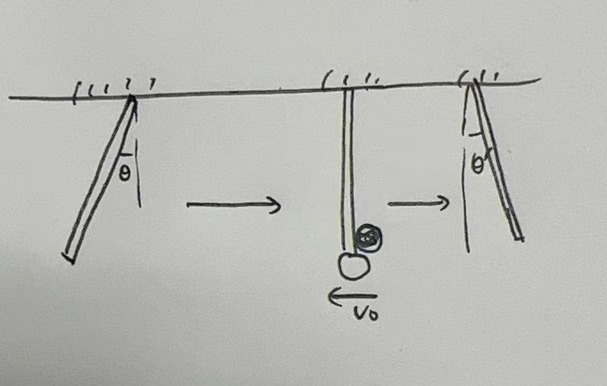 θ
θ'
v₀